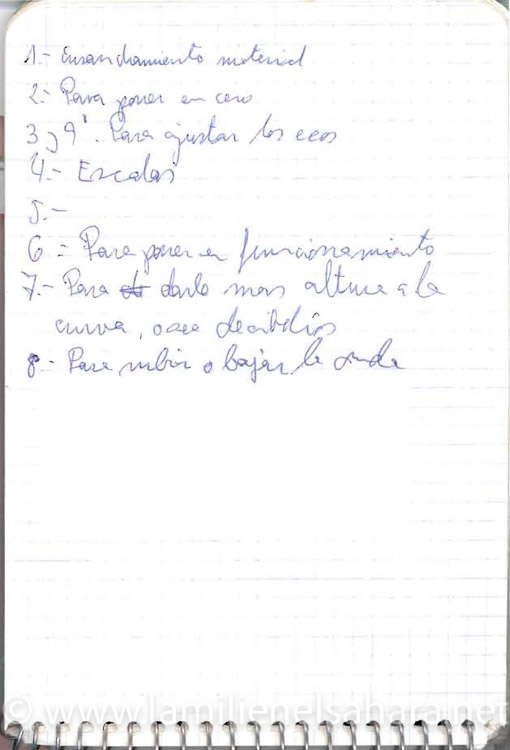 1.- Ensanchamiento material
2.- Para poner en cero
3 y 9'. Para ajustar los ecos
4.- Escalas
5.-
6 = Para poner en funcionamiento
7.- Para darle mas altura a la
curva, o sea decibelios
8.- Para subir o bajar la onda
© www.lamilienelsahara.net